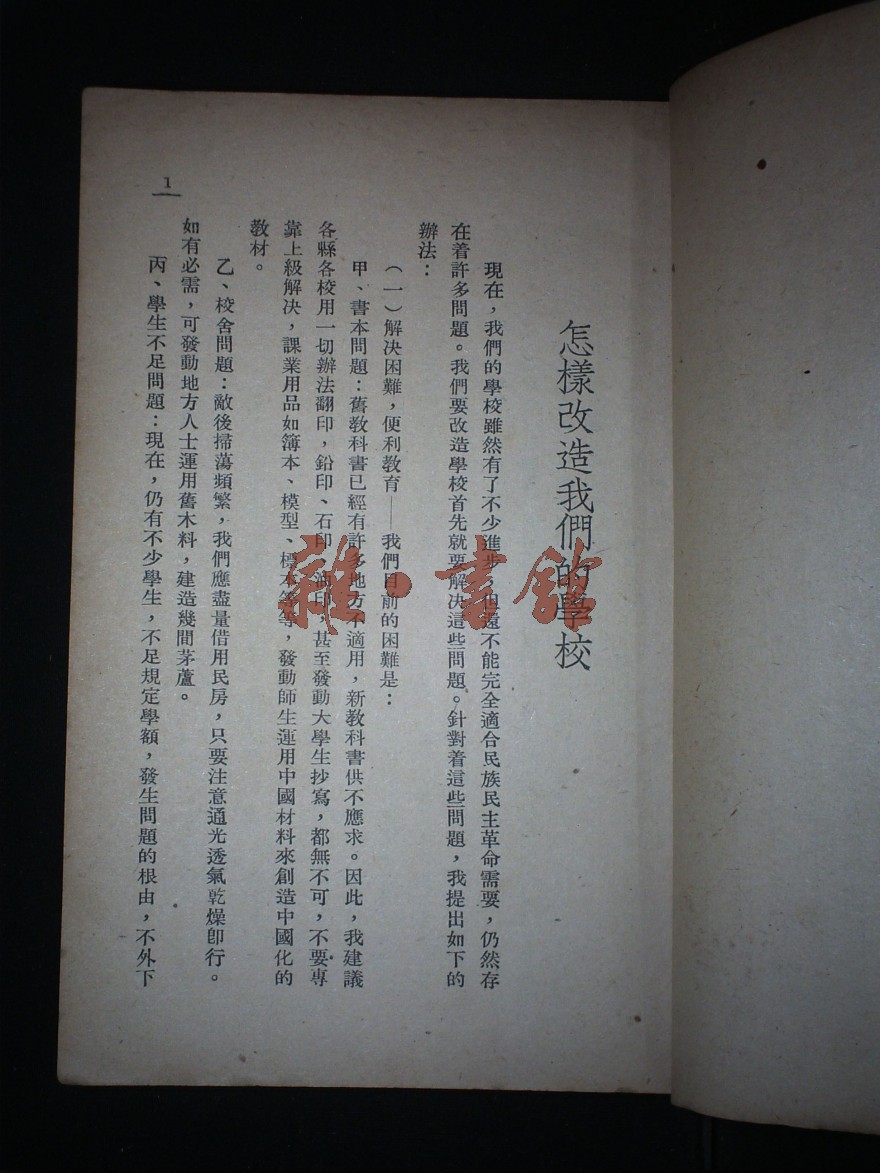 怎樣改造我們的學校
現在，我們的學校雖然有了不少進步，但還不能完全適合民族民主革命需要，仍然存
在着許多問題。我們要改造學校首先就要解決這些問題。針對着這些問題，我提出如下的
辦法：
（一）解決困難，便利教育——我們目前的困難是：
甲、書本問題：舊教科書已經有許多地方不適用，新教科書供不應求。因此，我建議
各縣各校用一切辦法翻印，鉛印、石印、油印，甚至發動大學生抄寫，都無不可，不要專
靠上級解決，課業用品如簿本、模型、標本等等，發動師生運用中國材料來創造中國化的
教材。
乙、校舍問題：敵後掃蕩頻繁，我們應盡量借用民房，只要注意通光透氣乾燥即行。
如有必需，可發動地方人士運用舊木料，建造幾間茅蘆。
丙、學生不足問題：現在，仍有不少學生，不足規定學額，發生問題的根由，不外下
1
雜·書館